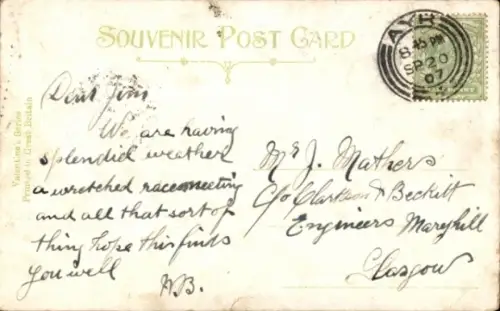 SOUVENIR POST CARD
AYR
8.45 PM
SP 20
07
Valentine's Series
Printed in Great Britain
Dear Jim
We are having
splendid weather
a wretched racemeeting
and all that sort of
thing hope this finds
you well
WB.
Mr J. Mathers
C/o Clarkson & Beckitt
Engineers Maryhill
Glasgow